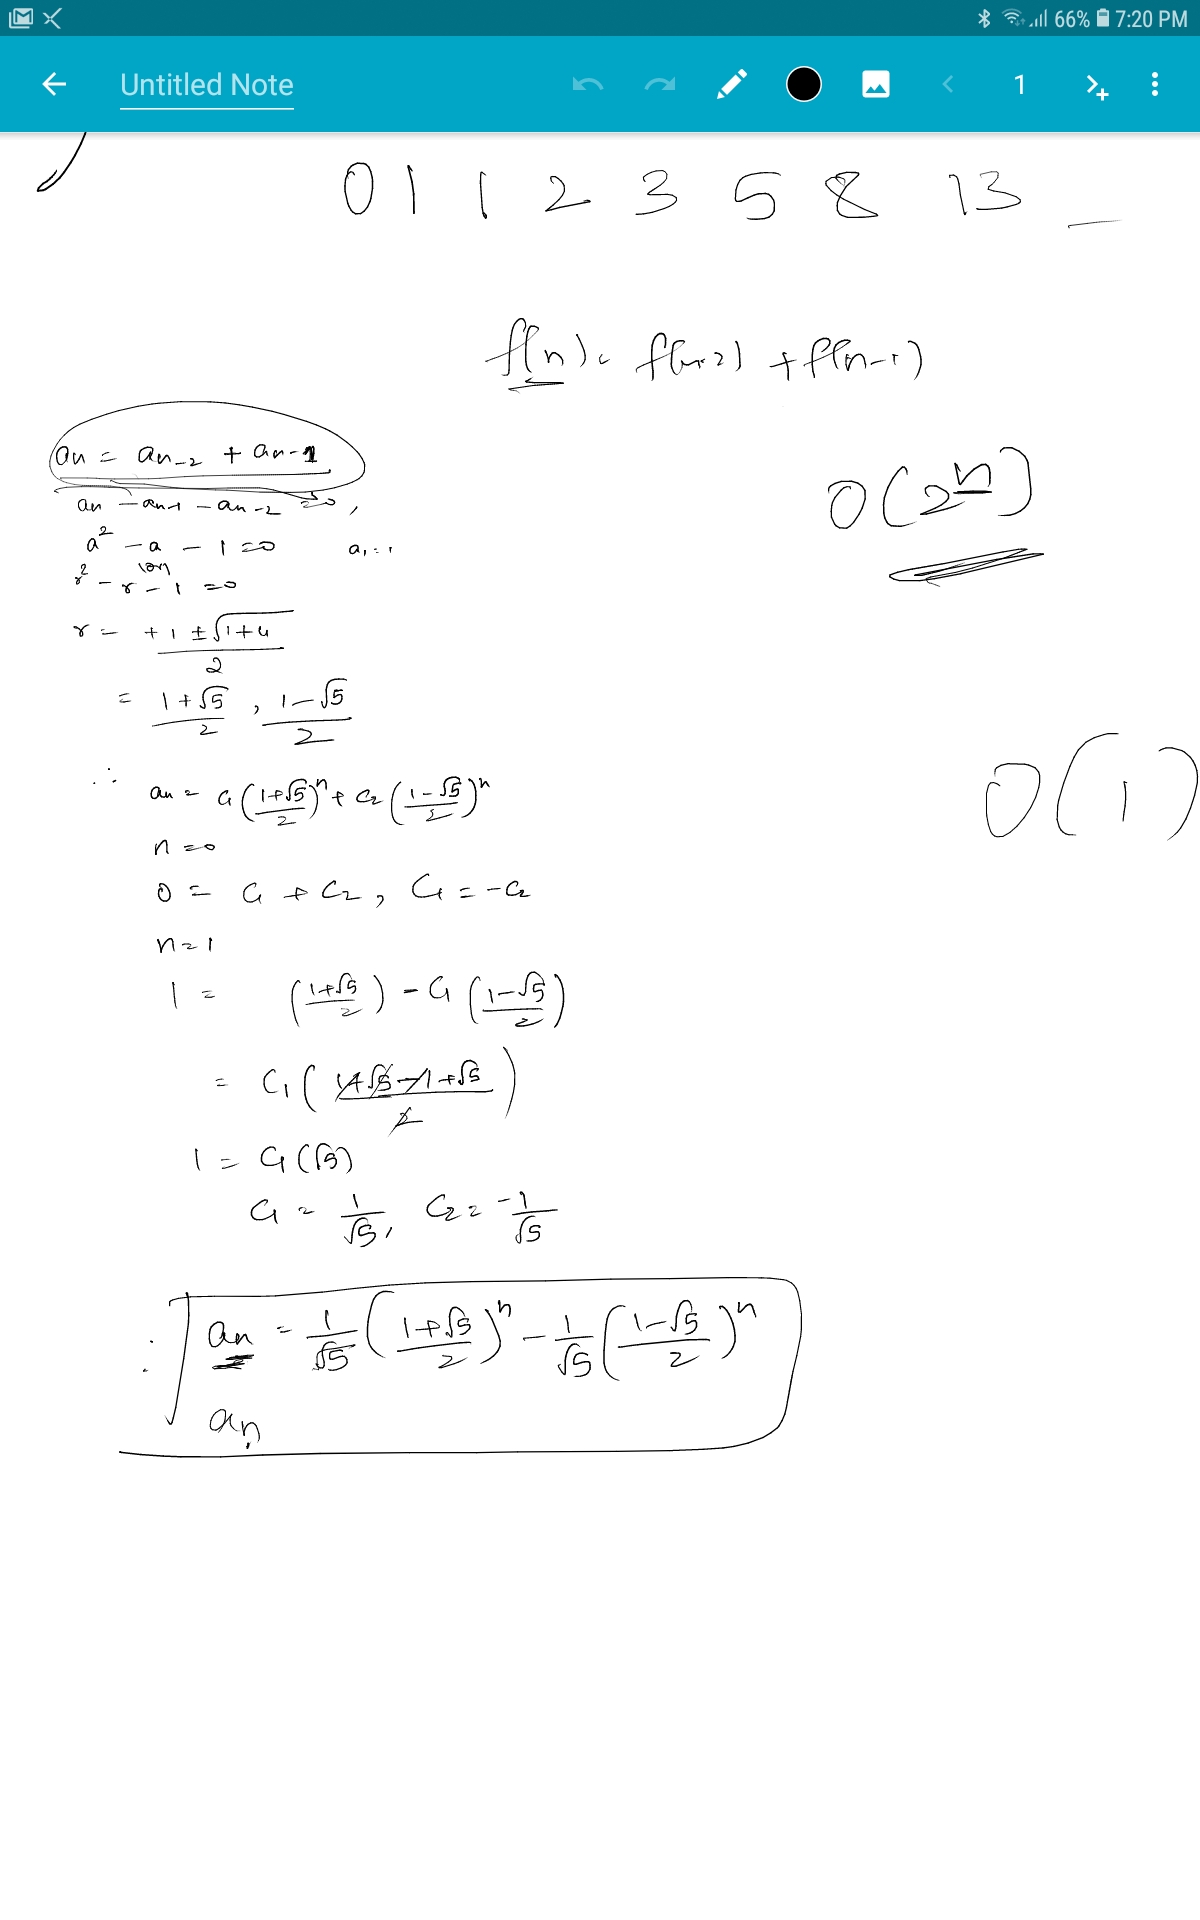 66% 7:20 PM
Untitled Note 1
0 1 1 2 3 5 8 13 _
f(n) = f(n-2) + f(n-1)
an = an-2 + an-1
O(2^n)
an - an-1 - an-2 = 0,
a² - a - 1 = 0 a₁ = 1
(or)
r² - r - 1 = 0
r = +1 ± √1+4 / 2
= 1+√5 / 2 , 1-√5 / 2
∴ an = C₁ (1+√5 / 2)^n + C₂ (1-√5 / 2)^n
O(1)
n = 0
0 = C₁ + C₂, C₁ = -C₂
n = 1
1 = (1+√5 / 2) - C₁ (1-√5 / 2)
= C₁ (1+√5-1+√5 / 2)
1 = C₁(√5)
C₁ = 1/√5, C₂ = -1/√5
∴ an = 1/√5 (1+√5 / 2)^n - 1/√5 (1-√5 / 2)^n
an